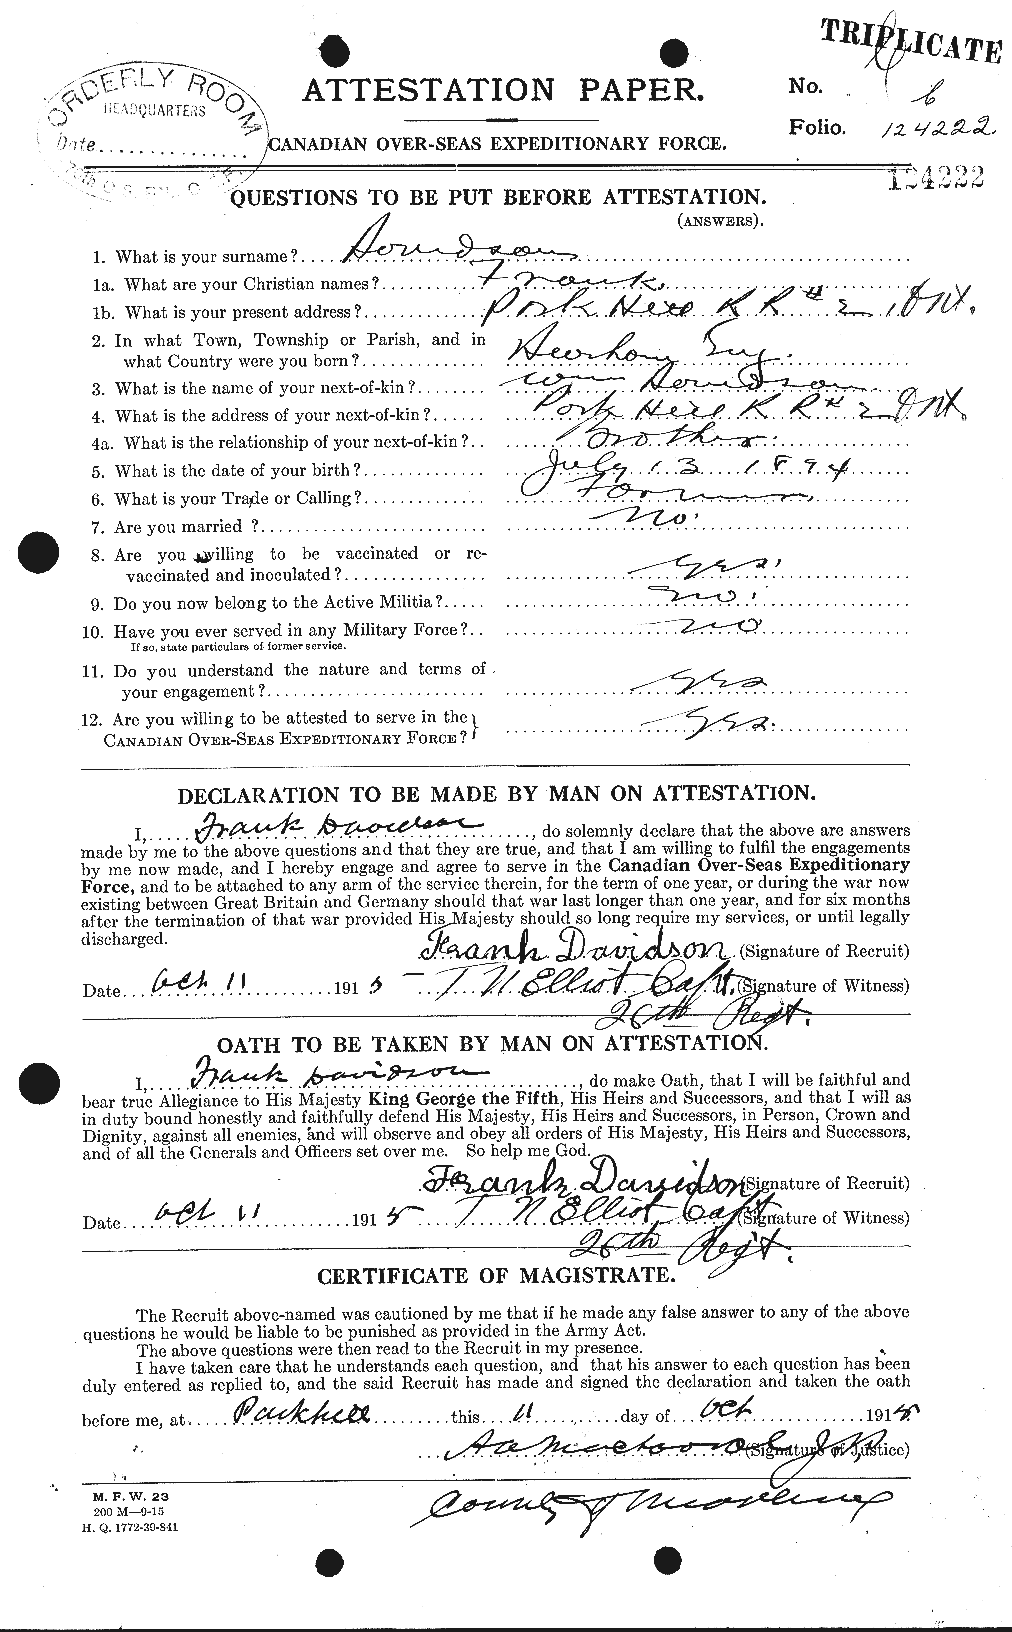 TRIPLICATE
ORDERLY ROOM
HEADQUARTERS
Date
ATTESTATION PAPER.
No. 6
Folio. 124222.
CANADIAN OVER-SEAS EXPEDITIONARY FORCE.
124222
QUESTIONS TO BE PUT BEFORE ATTESTATION.
(ANSWERS).
1. What is your surname? Davidson
1a. What are your Christian names? Frank.
1b. What is your present address? Park Hill R R # 2, Ont.
2. In what Town, Township or Parish, and in
what Country were you born? Eng.
3. What is the name of your next-of-kin? Wm Davidson
4. What is the address of your next-of-kin? Park Hill R R # 2 Ont
4a. What is the relationship of your next-of-kin? Brother.
5. What is the date of your birth? July 13 1894
6. What is your Trade or Calling? Farmer
7. Are you married ? No.
8. Are you willing to be vaccinated or re-
vaccinated and inoculated? Yes.
9. Do you now belong to the Active Militia? No.
10. Have you ever served in any Military Force? No
If so, state particulars of former service.
11. Do you understand the nature and terms of
your engagement? Yes
12. Are you willing to be attested to serve in the
CANADIAN OVER-SEAS EXPEDITIONARY FORCE? Yes.
DECLARATION TO BE MADE BY MAN ON ATTESTATION.
I, Frank Davidson, do solemnly declare that the above are answers
made by me to the above questions and that they are true, and that I am willing to fulfil the engagements
by me now made, and I hereby engage and agree to serve in the Canadian Over-Seas Expeditionary
Force, and to be attached to any arm of the service therein, for the term of one year, or during the war now
existing between Great Britain and Germany should that war last longer than one year, and for six months
after the termination of that war provided His Majesty should so long require my services, or until legally
discharged.
Frank Davidson (Signature of Recruit)
Date Oct 11 1915 T N Elliot Capt. (Signature of Witness)
26th Regt.
OATH TO BE TAKEN BY MAN ON ATTESTATION.
I, Frank Davidson, do make Oath, that I will be faithful and
bear true Allegiance to His Majesty King George the Fifth, His Heirs and Successors, and that I will as
in duty bound honestly and faithfully defend His Majesty, His Heirs and Successors, in Person, Crown and
Dignity, against all enemies, and will observe and obey all orders of His Majesty, His Heirs and Successors,
and of all the Generals and Officers set over me. So help me God.
Frank Davidson (Signature of Recruit)
Date Oct 11 1915 T N Elliot, Capt (Signature of Witness)
26th Regt.
CERTIFICATE OF MAGISTRATE.
The Recruit above-named was cautioned by me that if he made any false answer to any of the above
questions he would be liable to be punished as provided in the Army Act.
The above questions were then read to the Recruit in my presence.
I have taken care that he understands each question, and that his answer to each question has been
duly entered as replied to, and the said Recruit has made and signed the declaration and taken the oath
before me, at Parkhill this 11 day of Oct 1915
J.P. (Signature of Justice)
County of Middlesex
M. F. W. 23
200 M—9-15
H. Q. 1772-39-841